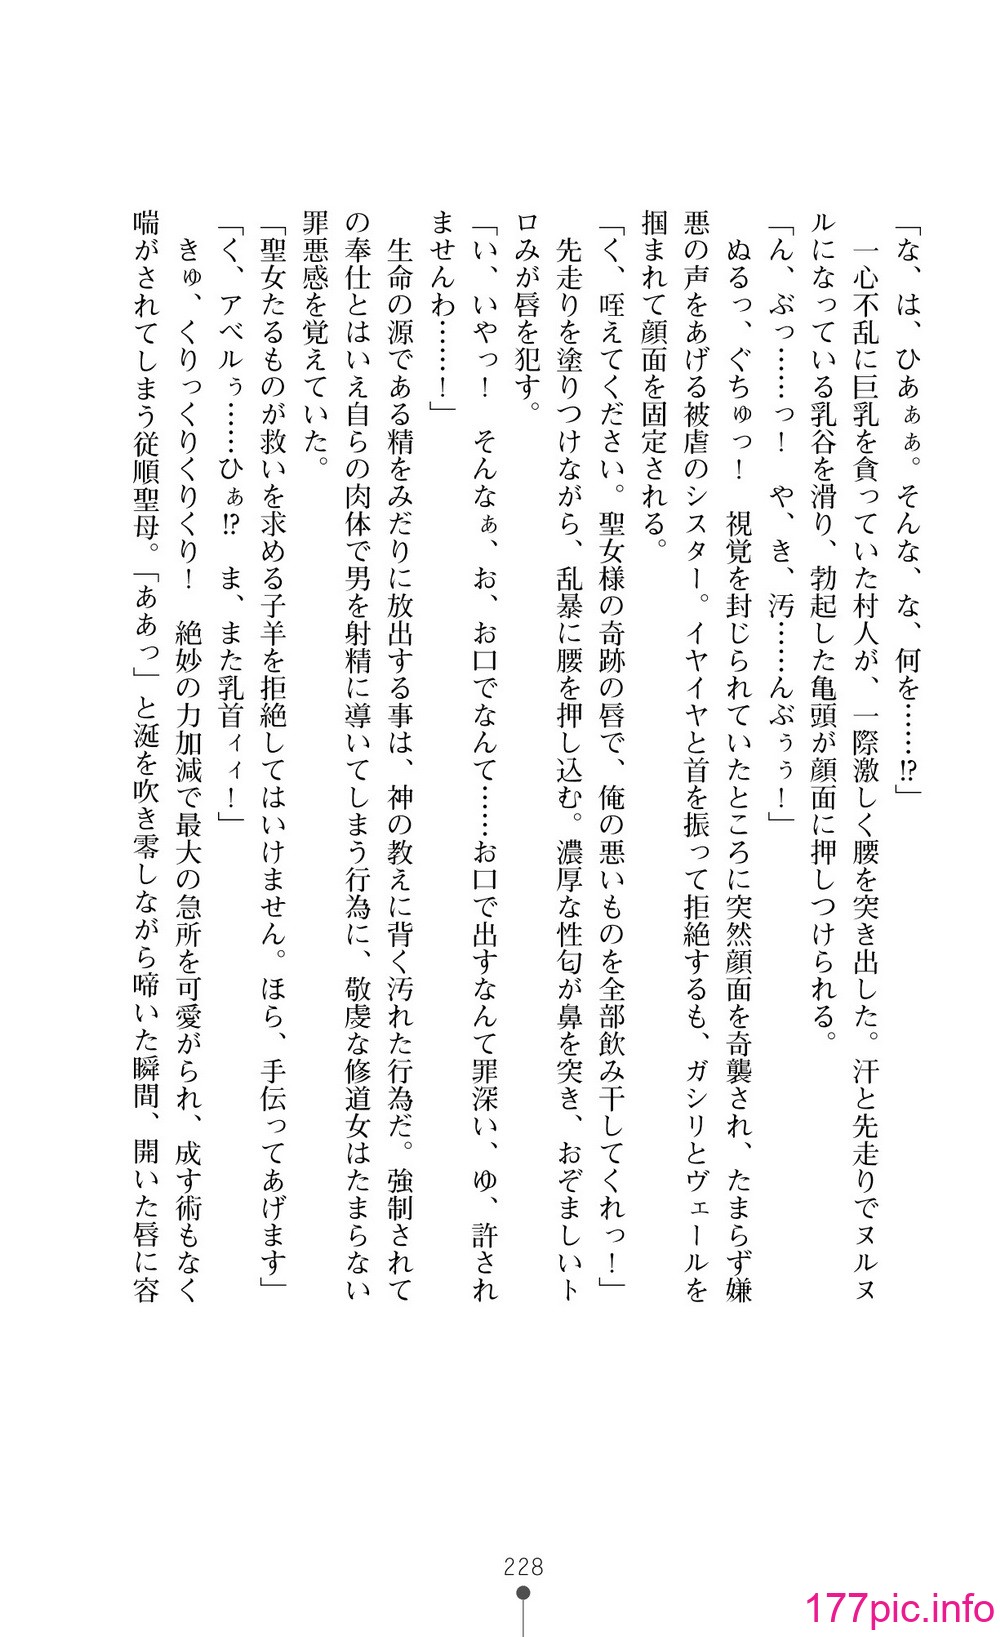 「な、は、ひあぁぁ。そんな、な、何を……!?」
　一心不乱に巨乳を貪っていた村人が、一際激しく腰を突き出した。汗と先走りでヌルヌ
ルになっている乳谷を滑り、勃起した亀頭が顔面に押しつけられる。
「ん、ぶっ……っ！　や、き、汚……んぶぅぅ！」
　ぬるっ、ぐちゅっ！　視覚を封じられていたところに突然顔面を奇襲され、たまらず嫌
悪の声をあげる被虐のシスター。イヤイヤと首を振って拒絶するも、ガシリとヴェールを
掴まれて顔面を固定される。
「く、咥えてください。聖女様の奇跡の唇で、俺の悪いものを全部飲み干してくれっ！」
　先走りを塗りつけながら、乱暴に腰を押し込む。濃厚な性匂が鼻を突き、おぞましいト
ロみが唇を犯す。
「い、いやっ！　そんなぁ、お、お口でなんて……お口で出すなんて罪深い、ゆ、許され
ませんわ……！」
　生命の源である精をみだりに放出する事は、神の教えに背く汚れた行為だ。強制されて
の奉仕とはいえ自らの肉体で男を射精に導いてしまう行為に、敬虔な修道女はたまらない
罪悪感を覚えていた。
「聖女たるものが救いを求める子羊を拒絶してはいけません。ほら、手伝ってあげます」
「く、アベルぅ……ひぁ!?　ま、また乳首ィィ！」
　きゅ、くりっくりくりくり！　絶妙の力加減で最大の急所を可愛がられ、成す術もなく
喘がされてしまう従順聖母。「ああっ」と涎を吹き零しながら啼いた瞬間、開いた唇に容
228
177pic.info